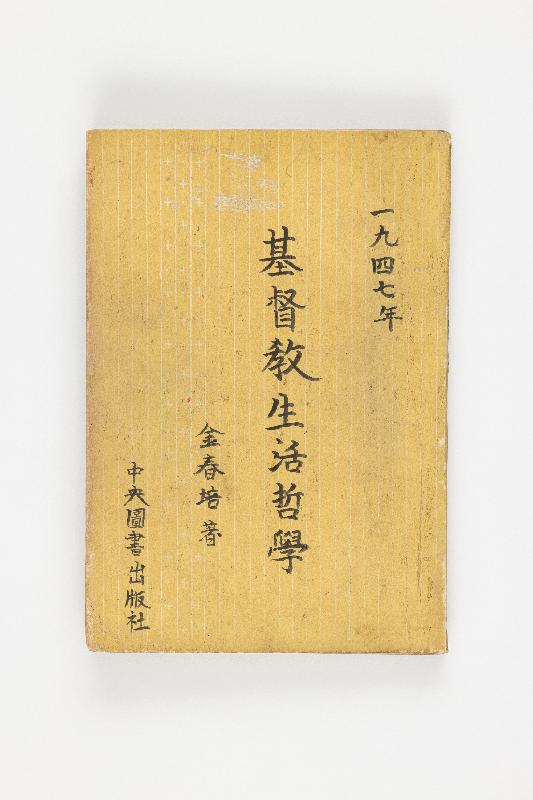 一九四七年
基督教生活哲學
金春培 著
中央圖書出版社